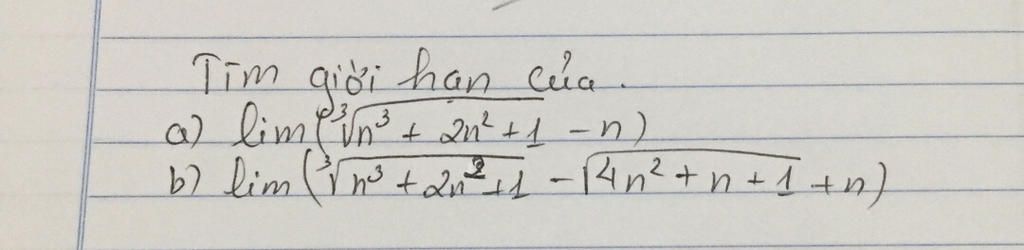 Tìm giới hạn của.
a) lim(∛(n³ + 2n² + 1) - n)
b) lim(∛(n³ + 2n² + 1) - √(4n² + n + 1) + n)